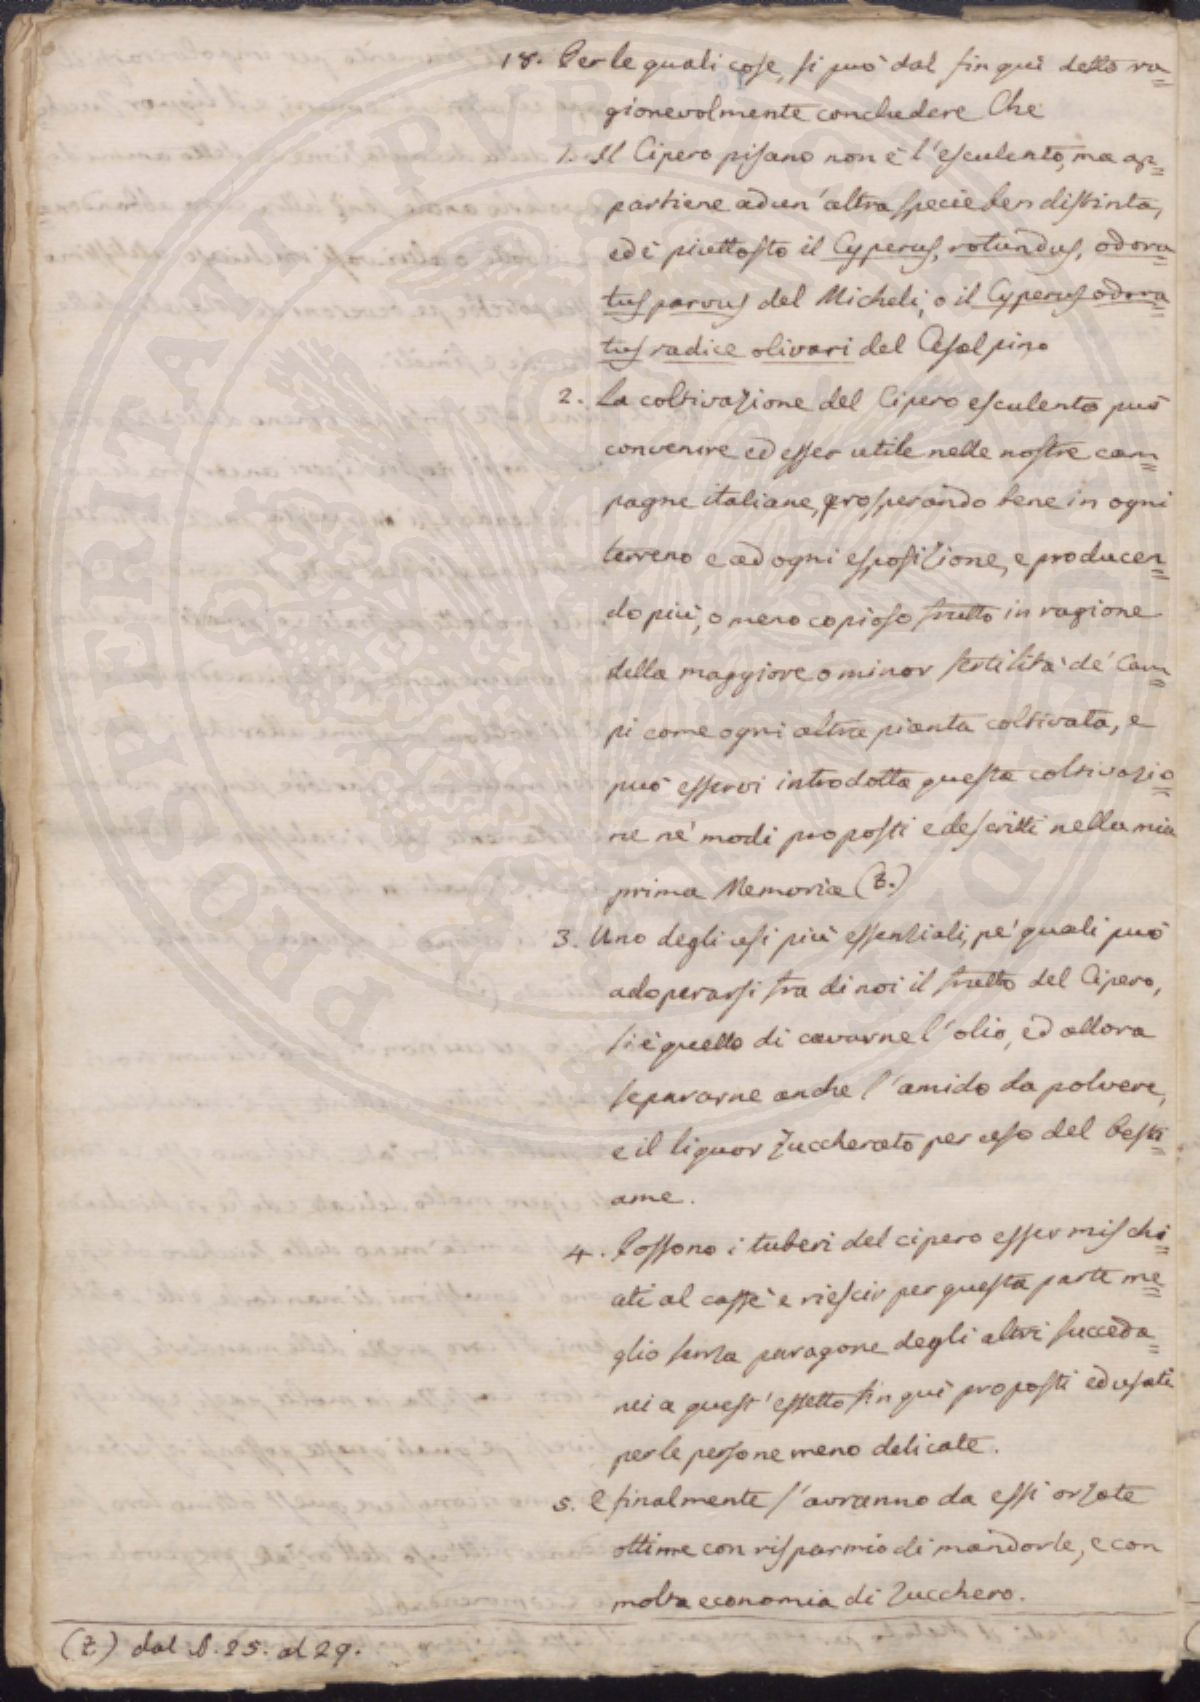 18. Per le quali cose, si può dal fin quì detto ra=
gionevolmente conchedere Che
1. Il Cipero pisano non è l'esculento, ma ap=
partiene ad un'altra specie ben distinta,
ed è piuttosto il Cyperus, rotundus, odora=
tus parvus del Micheli, o il Cyperus odora=
tus radice olivari del Cesalpino
2. La coltivazione del Cipero esculento può
convenire ed esser utile nelle nostre cam=
pagne italiane, prosperando bene in ogni
terreno e ad ogni esposizione, e producen=
do più, o meno copioso frutto in ragione
della maggiore o minor fertilità de' Cam=
pi come ogni altra pianta coltivata, e
può esservi introdotta questa coltivazio=
ne ne' modi proposti e descritti nella mia
prima Memoria (Z.)
3. Uno degli usi più essenziali, pe' quali può
adoperarsi fra di noi il frutto del Cipero,
si è quello di cavarne l'olio, ed allora
separarne anche l'amido da polvere,
e il liquor Zuccherato per uso del besti=
ame.
4. Possono i tuberi del cipero esser mischi=
ati al caffè e riescir per questa parte me=
glio senza paragone degli altri succeda=
nei a quest'effetto fin quì proposti ed usati
per le persone meno delicate.
5. E finalmente s'avranno da essi orzate
ottime con risparmio di mandorle, e con
molta economia di Zucchero.
(Z) dal §. 25. al 29.
PROSPERITATI PVBLICAE